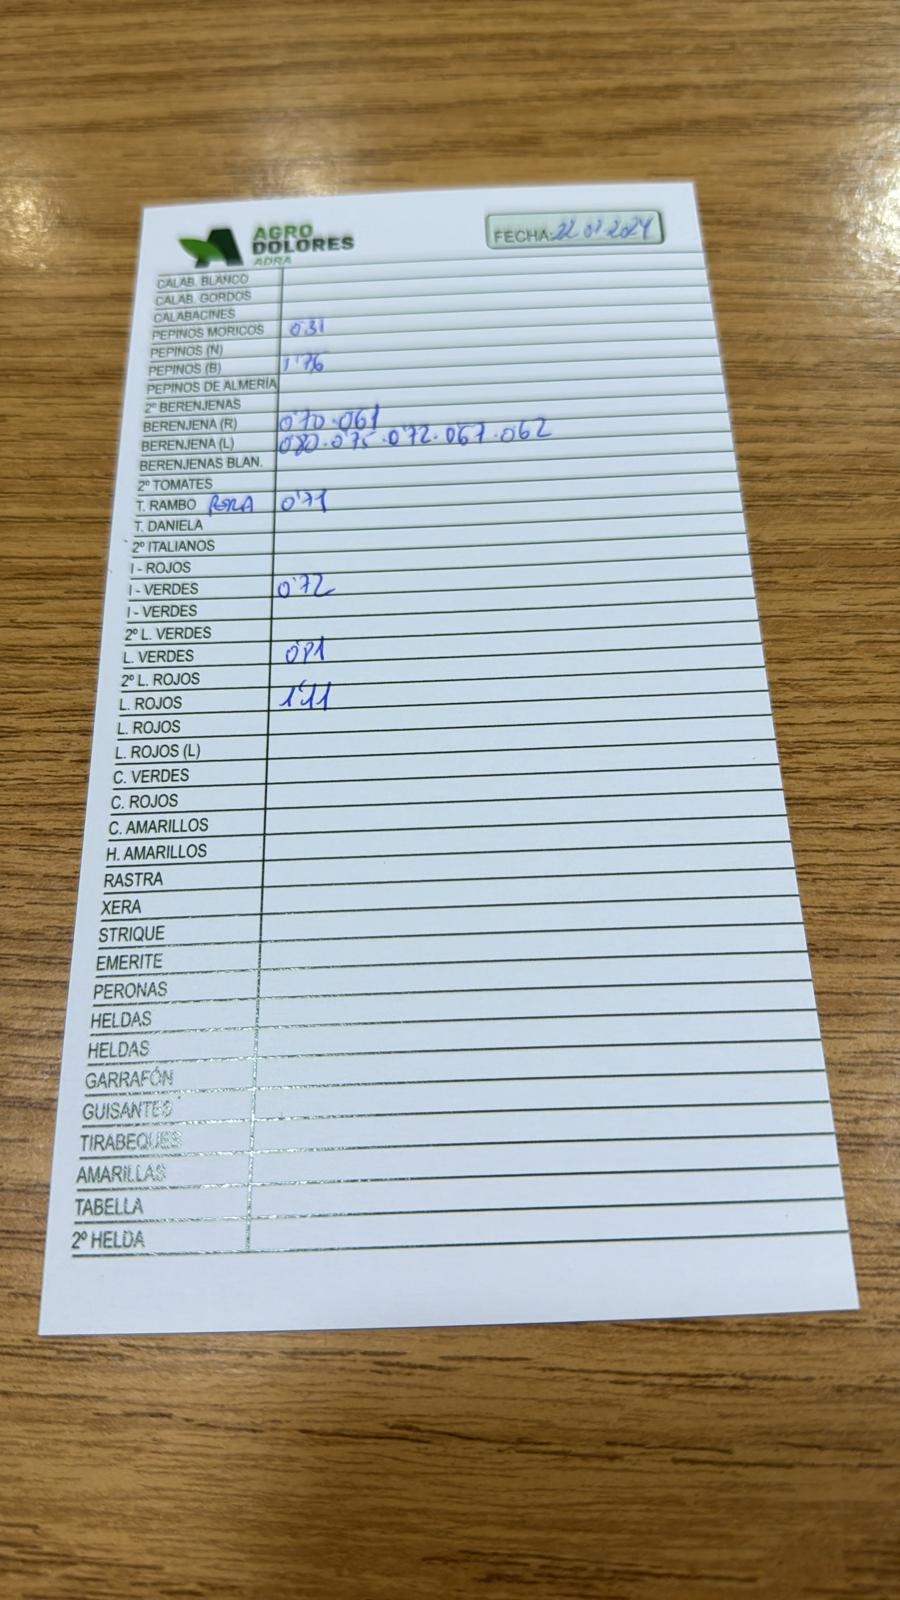 AGRO
DOLORES
ADRA
FECHA: 22 01 2024
CALAB. BLANCO
CALAB. GORDOS
CALABACINES
PEPINOS MORICOS 0'31
PEPINOS (N)
PEPINOS (B) 1'76
PEPINOS DE ALMERÍA
2º BERENJENAS
BERENJENA (R) 0'70 - 061
BERENJENA (L) 080 - 0'75 - 072 - 067 - 062
BERENJENAS BLAN.
2º TOMATES
T. RAMBO PERA 0'71
T. DANIELA
2º ITALIANOS
I - ROJOS
I - VERDES 0'72
I - VERDES
2º L. VERDES
L. VERDES 081
2º L. ROJOS
L. ROJOS 1'11
L. ROJOS
L. ROJOS (L)
C. VERDES
C. ROJOS
C. AMARILLOS
H. AMARILLOS
RASTRA
XERA
STRIQUE
EMERITE
PERONAS
HELDAS
HELDAS
GARRAFÓN
GUISANTES
TIRABEQUES
AMARILLAS
TABELLA
2º HELDA